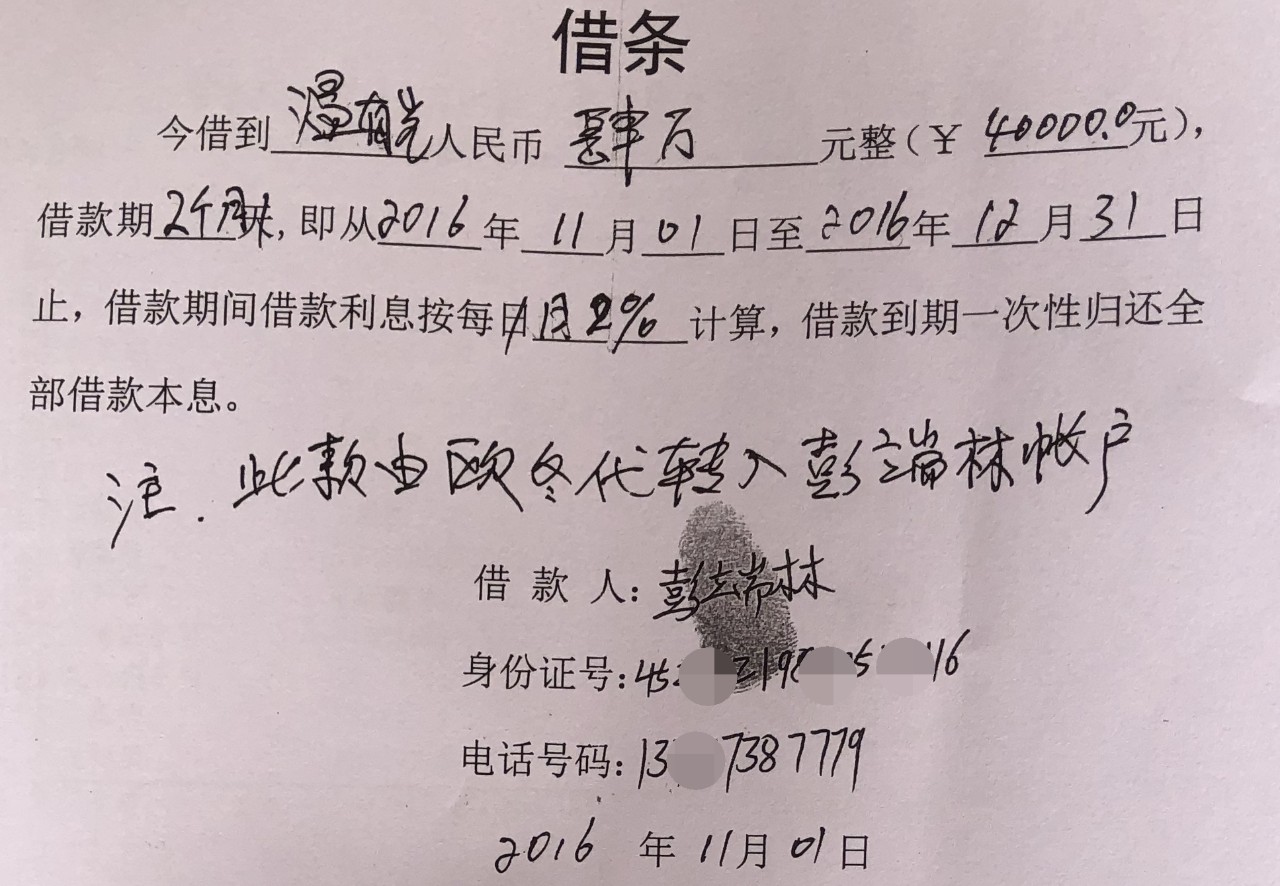 借条
今借到温有光人民币 肆万 元整（¥ 40000.0元），
借款期2个月，即从2016年 11月01日至2016年12月31日
止，借款期间借款利息按每月2%计算，借款到期一次性归还全
部借款本息。
注．此款由欧冬代转入彭端林帐户
借 款 人：彭端林
身份证号：45 2198 5 16
电话号码：13 7387779
2016 年 11月 01日